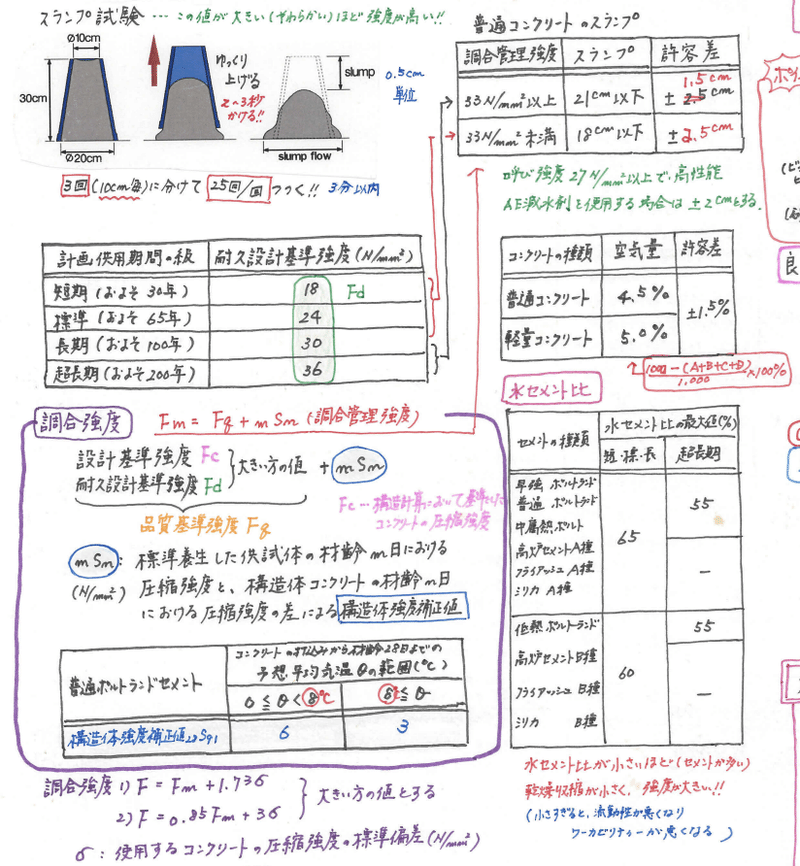 スランプ試験 … この値が大きい(やわらかい)ほど強度が高い!!
Ø10cm
30cm
Ø20cm
ゆっくり
上げる
2~3秒
かける!!
slump
slump flow
0.5cm
単位
3回(10cm毎)に分けて 25回/回 つつく!! 3分以内
普通コンクリートのスランプ
調合管理強度 スランプ 許容差
33N/mm²以上 21cm以下 ±2.5cm 1.5cm
33N/mm²未満 18cm以下 ±2.5cm
呼び強度27N/mm²以上で、高性能
AE減水剤を使用する場合は±2cmとする.
計画供用期間の級 耐久設計基準強度(N/mm²)
短期(およそ30年) 18 Fd
標準(およそ65年) 24
長期(およそ100年) 30
超長期(およそ200年) 36
コンクリートの種類 空気量 許容差
普通コンクリート 4.5% ±1.5%
軽量コンクリート 5.0%
1000-(A+B+C+D)
1.000
×100%
調合強度 Fm = Fq + mSm (調合管理強度)
設計基準強度 Fc
耐久設計基準強度 Fd
大きい方の値 + mSm
品質基準強度 Fq
Fc … 構造計算において基準とした
コンクリートの圧縮強度
mSm : 標準養生した供試体の材齢m日における
(N/mm²) 圧縮強度と、構造体コンクリートの材齢n日
における圧縮強度の差による 構造体強度補正値
普通ポルトランドセメント
コンクリートの打込みから材齢28日までの
予想平均気温θの範囲(℃)
0≦θ<8℃ 8≦θ
構造体強度補正値28S91 6 3
調合強度 1) F = Fm + 1.73σ
2) F = 0.85Fm + 3σ
大きい方の値とする
σ : 使用するコンクリートの圧縮強度の標準偏差(N/mm²)
水セメント比
セメントの種類 水セメント比の最大値(%)
短・標・長 超長期
早強 ポルトランド
普通 ポルトランド
中庸熱ポルト
高炉セメントA種
フライアッシュ A種
シリカ A種
65
55
―
低熱ポルトランド
高炉セメントB種
フライアッシュ B種
シリカ B種
60
55
―
水セメント比が小さいほど(セメントが多い)
乾燥収縮が小さく、強度が大きい!!
(小さすぎると、流動性が悪くなり
ワーカビリティーが悪くなる)
良